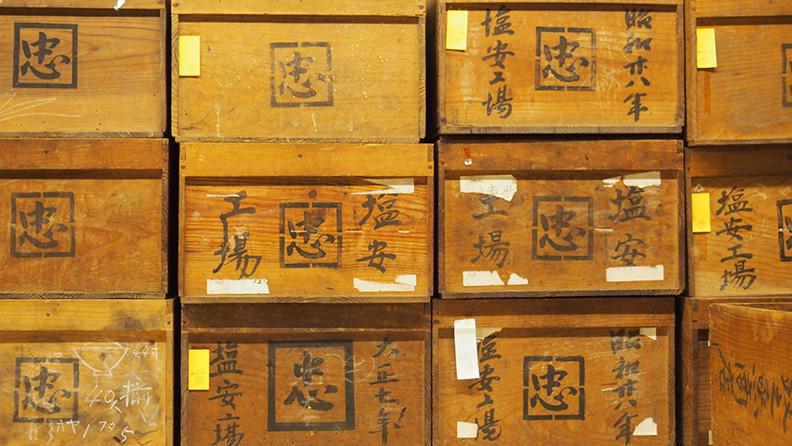 忠
忠
昭和廿八年
忠
塩安工場
忠
塩安
忠
工場
塩安
忠
工場
塩安工場
忠
大正七年
忠
塩安工場
昭和廿八年
忠
塩安工場